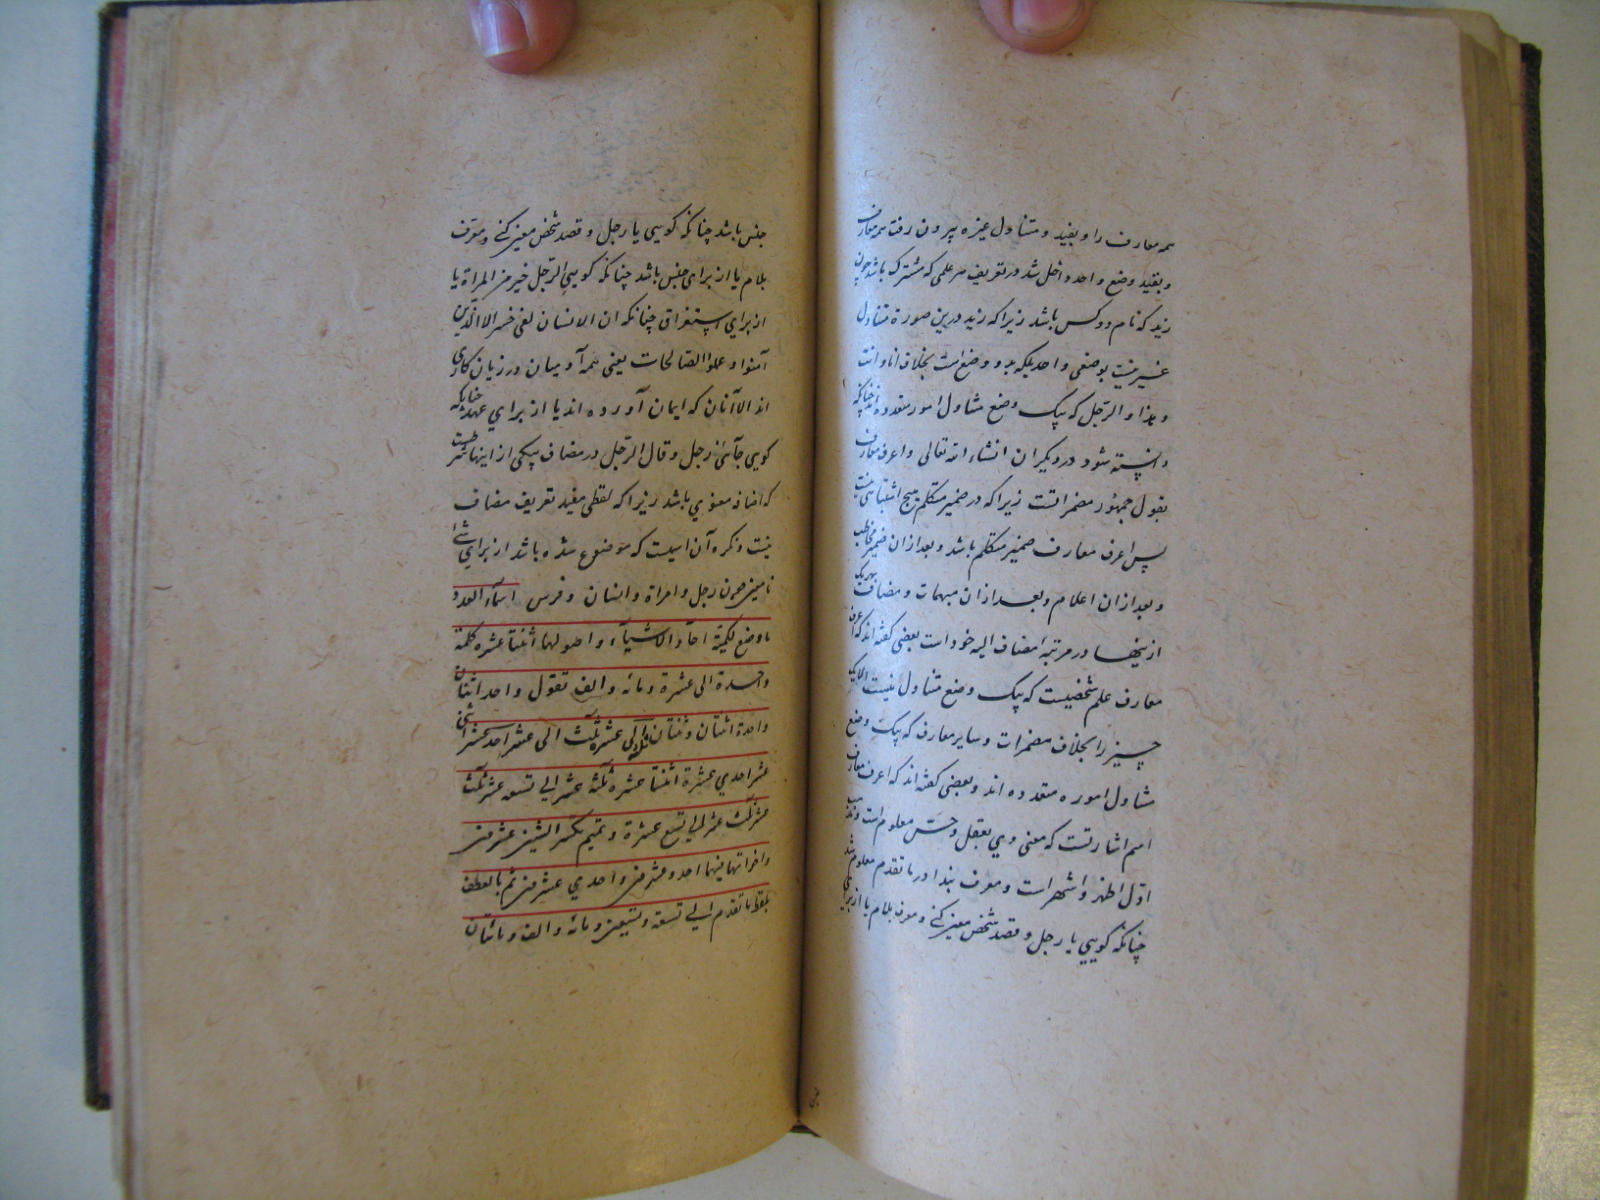 همه معارف را و بقید و متناول غیره بیرون رفت همه معارف
و بقید وضع واحد داخل شد در تعریف هر علمی که مشترک باشد چون
زید که نام دو کس باشد زیرا که زید درین صورة متناول
غیر نیست بوضعی واحد بلکه بدو وضع است بخلاف انا و انت
و هذا و الرجل که بیک وضع متناول امور متعدده اند چنانکه
دانسته شود در دیکران انشاء الله تعالی و اعرف معارف
بقول جمهور مضمراتست زیرا که در ضمیر متکلم هیچ اشتباهی نیست
پس اعرف معارف ضمیر متکلم باشد و بعد ازان ضمیر مخاطب
و بعد ازان اعلام و بعد ازان مبهمات و مضاف بهر یک
ازینها در مرتبه مضاف الیه خود است بعضی کفته اند که اعرف
معارف علم شخصیست که بیک وضع متناول نیست الا یک
چیز را بخلاف مضمرات و سایر معارف که بیک وضع
متناول اموره متعدده اند و بعضی کفته اند که اعرف معارف
اسم اشارتست که معنی وی بعقل و حس معلوم است و مذهب
اول اظهر و اشهر است و معرف بندا در ما تقدم معلوم شد
چنانکه کویی یا رجل و قصد شخص معین کنی و معرف بلام یا از برای
جنس باشد چنانکه کویی یا رجل و قصد شخص معین کنی و معرف
بلام یا از برای جنس باشد چنانکه کویی الرجل خیر من المراة یا
از برای استغراق چنانکه ان الانسان لفی خسر الا الذین
آمنوا و عملوا الصالحات یعنی همه آدمیان در زیان کاری
اند الا آنان که ایمان آورده اند یا از برای عهد چنانکه
کویی جائنی رجل و قال الرجل در مضاف بیکی از اینها شرطست
که اضافه معنوی باشد زیرا که لفظی مفید تعریف مضاف
نیست و نکره آن اسیست که موضوع شده باشد از برای شئ
نامعین چون رجل و امراة و انسان و فرس اسماء العدد
ما وضع لکمیة احاد الاشیاء و اصولها اثنتا عشرة کلمة
واحدة الی عشرة و مائة و الف تقول واحد اثنان
واحدة اثنتان و ثنتان ثلثة الی عشرة ثلث الی عشر احد عشر اثنی
عشر احدی عشرة اثنتا عشرة ثلثة عشر الی تسعة عشر ثلث
عشرة الی تسع عشرة و تمیم تکسر الشین عشرون
و اخواتها فیهما احد و عشرون و احدی عشرون ثم بالعطف
بلفظ ما تقدم الی تسعة و تسعین و مائة و الف و مائتان